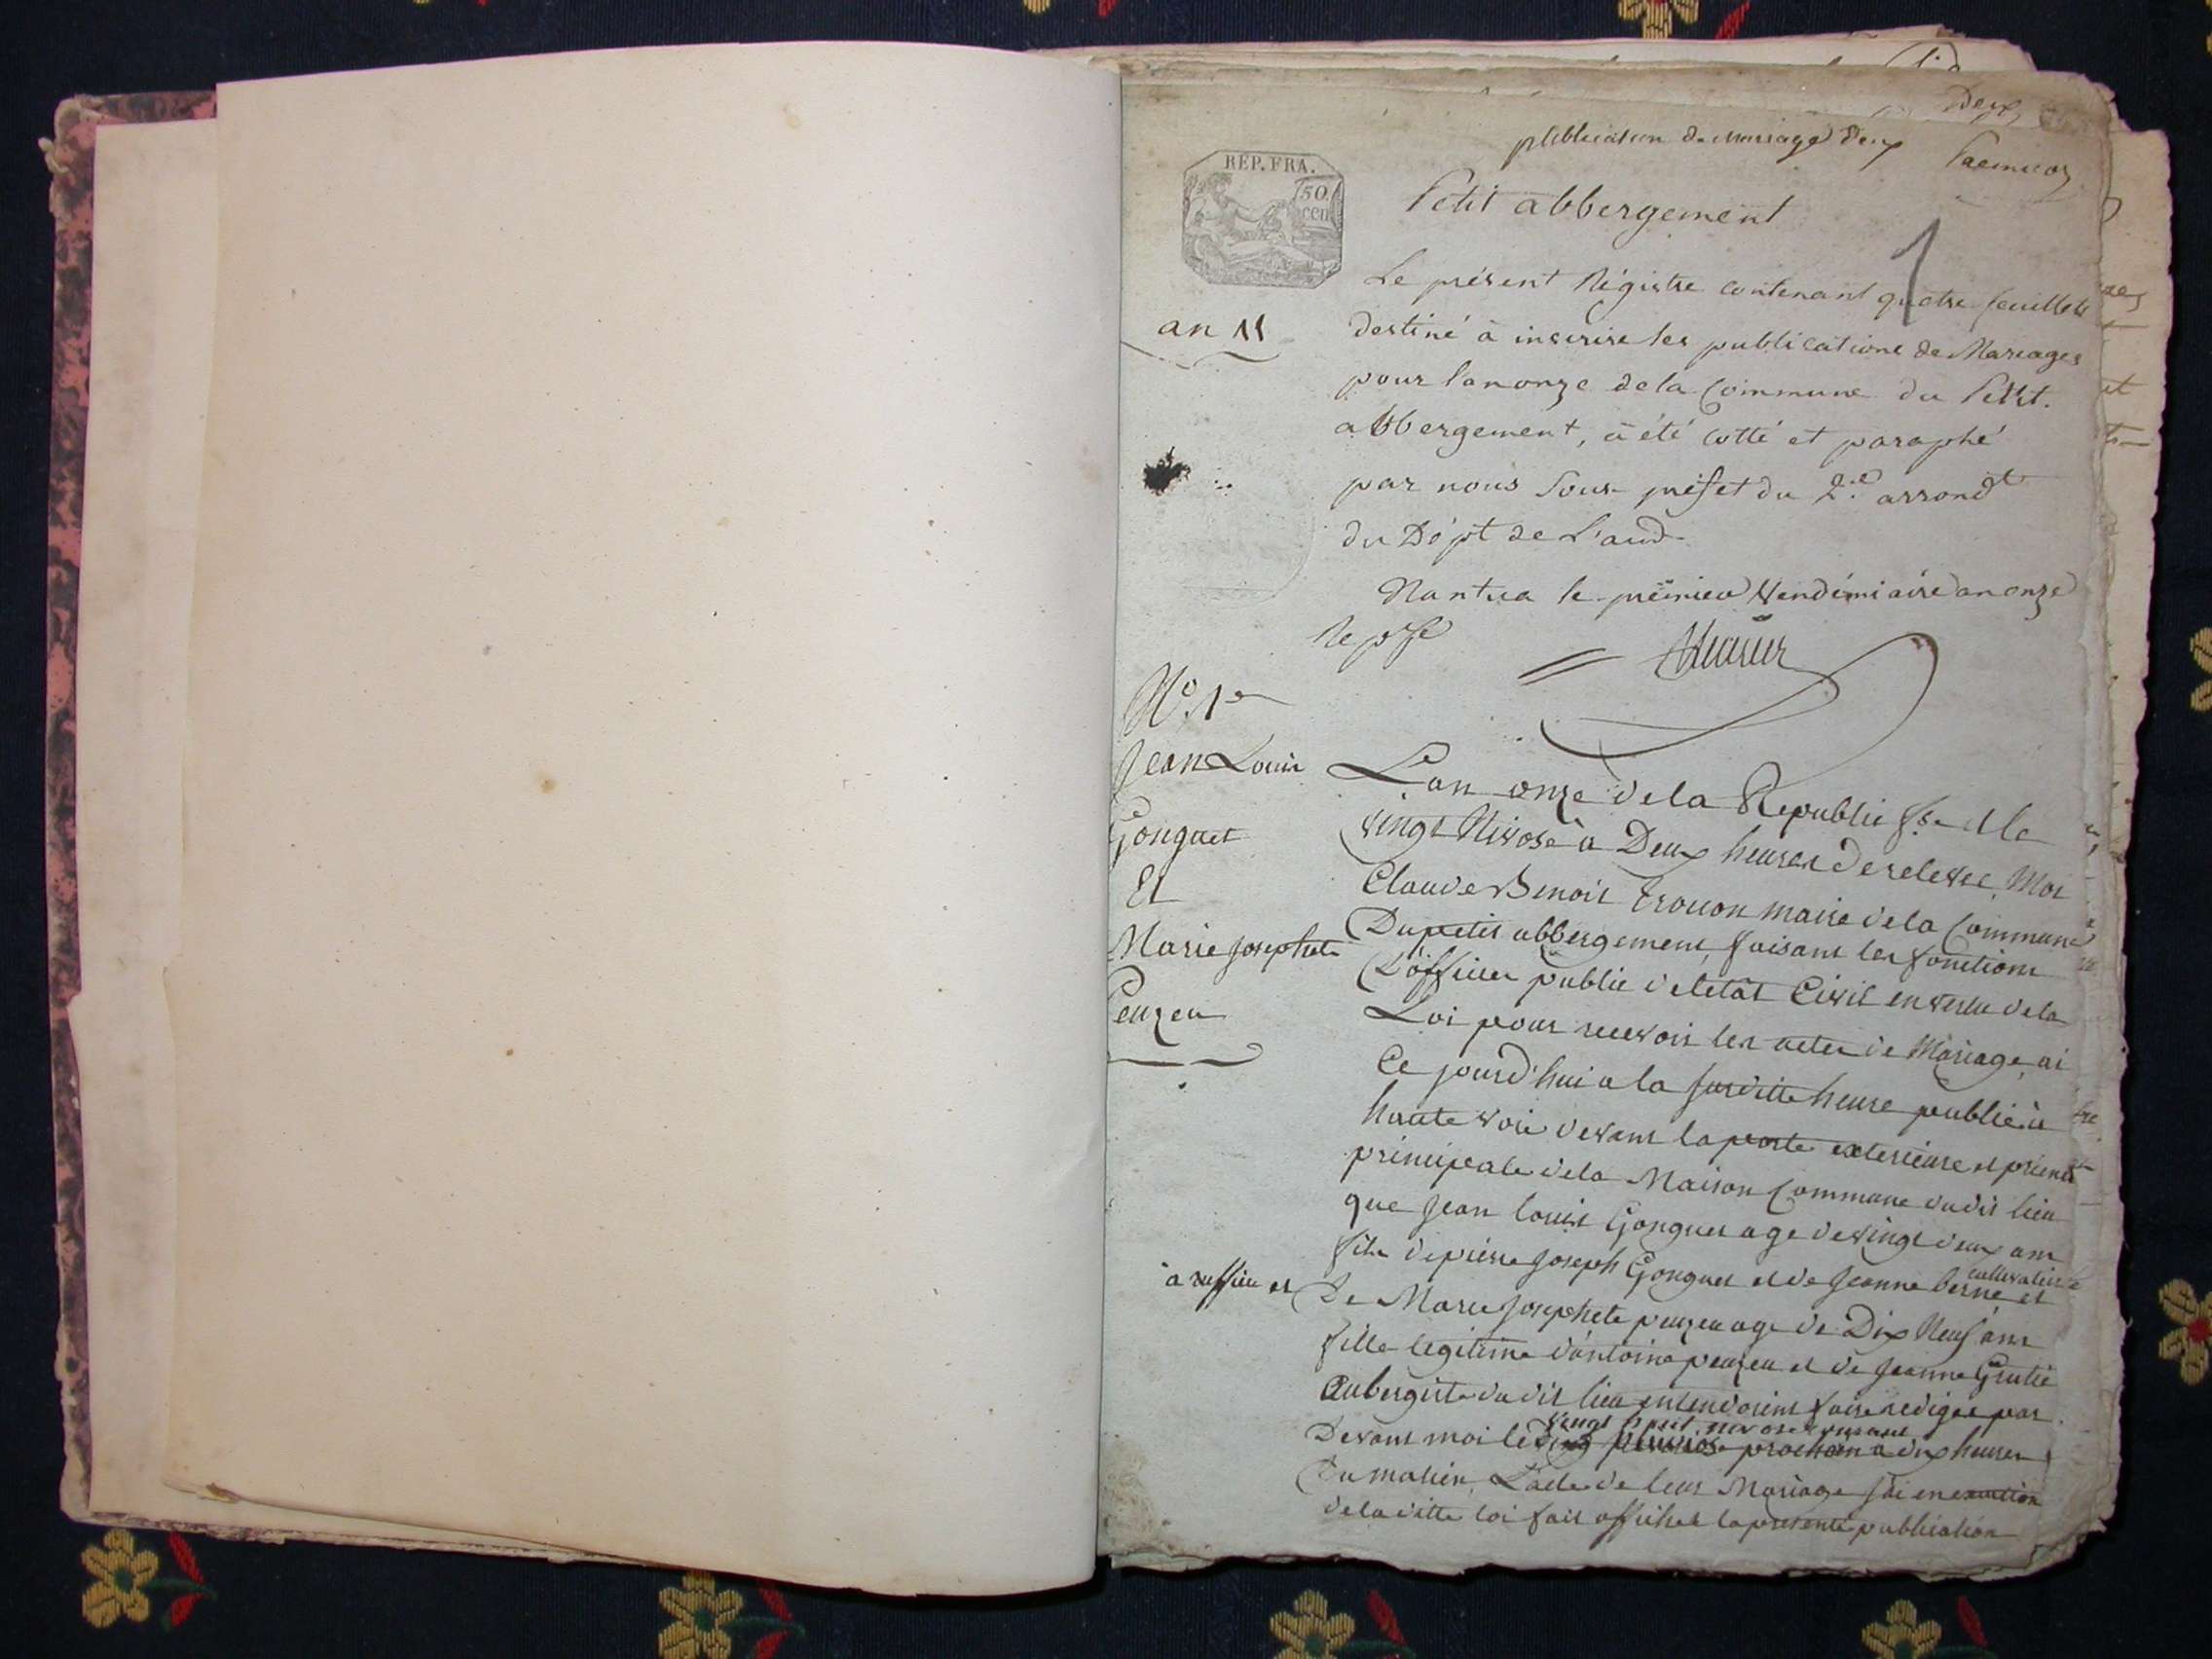 Deux
publication de Mariage Deux
RÉP. FRA.
50
cen
Petit abbergement
1
an 11
Le présent Régistre contenant quatre feuillets
destiné à inscrire les publications de Mariages
pour l'an onze de la Commune du Petit.
abbergement, à été cotté et paraphé
par nous Sous-préfet du 2.e arrond.t
du Dépt de L'ain
Nantua le premier Vendémiaire an onze
N.o 1er
Jean Louis
Gonguet
Et
Marie Josephete
Peuzeu
L'an onze de la Republi fse et le
vingt Nivose à Deux heures de relevée, Moi
Claude Benoit Trocon maire de la Commune
Du petit abbergement, faisant les fonctions
D'officier public de l'etat Civil en vertu de la
Loi pour recevoir les actes de Mariage, ai
Ce jourd'hui a la susditte heure publié à
haute voix devant la porte exterieure et
principale de la Maison Commune dudit lieu
que Jean Louis Gonguet age de vingt deux ans
fils de pierre Joseph Gonguet et de Jeanne berne et
cultivateur
a ruffieu et
De Marie Josephete peuzeu age de Dix Neuf ans
fille legitime d'antoine peuzeu et de Jeanne
Aubergiste dudit lieu entendoient faire rediger par
vingt huit nivose
Devant moi le pluviose prochain a dix heures
Du matin, L'acte de leur Mariage j'ai en
de la ditte loi fait afficher la presente publication